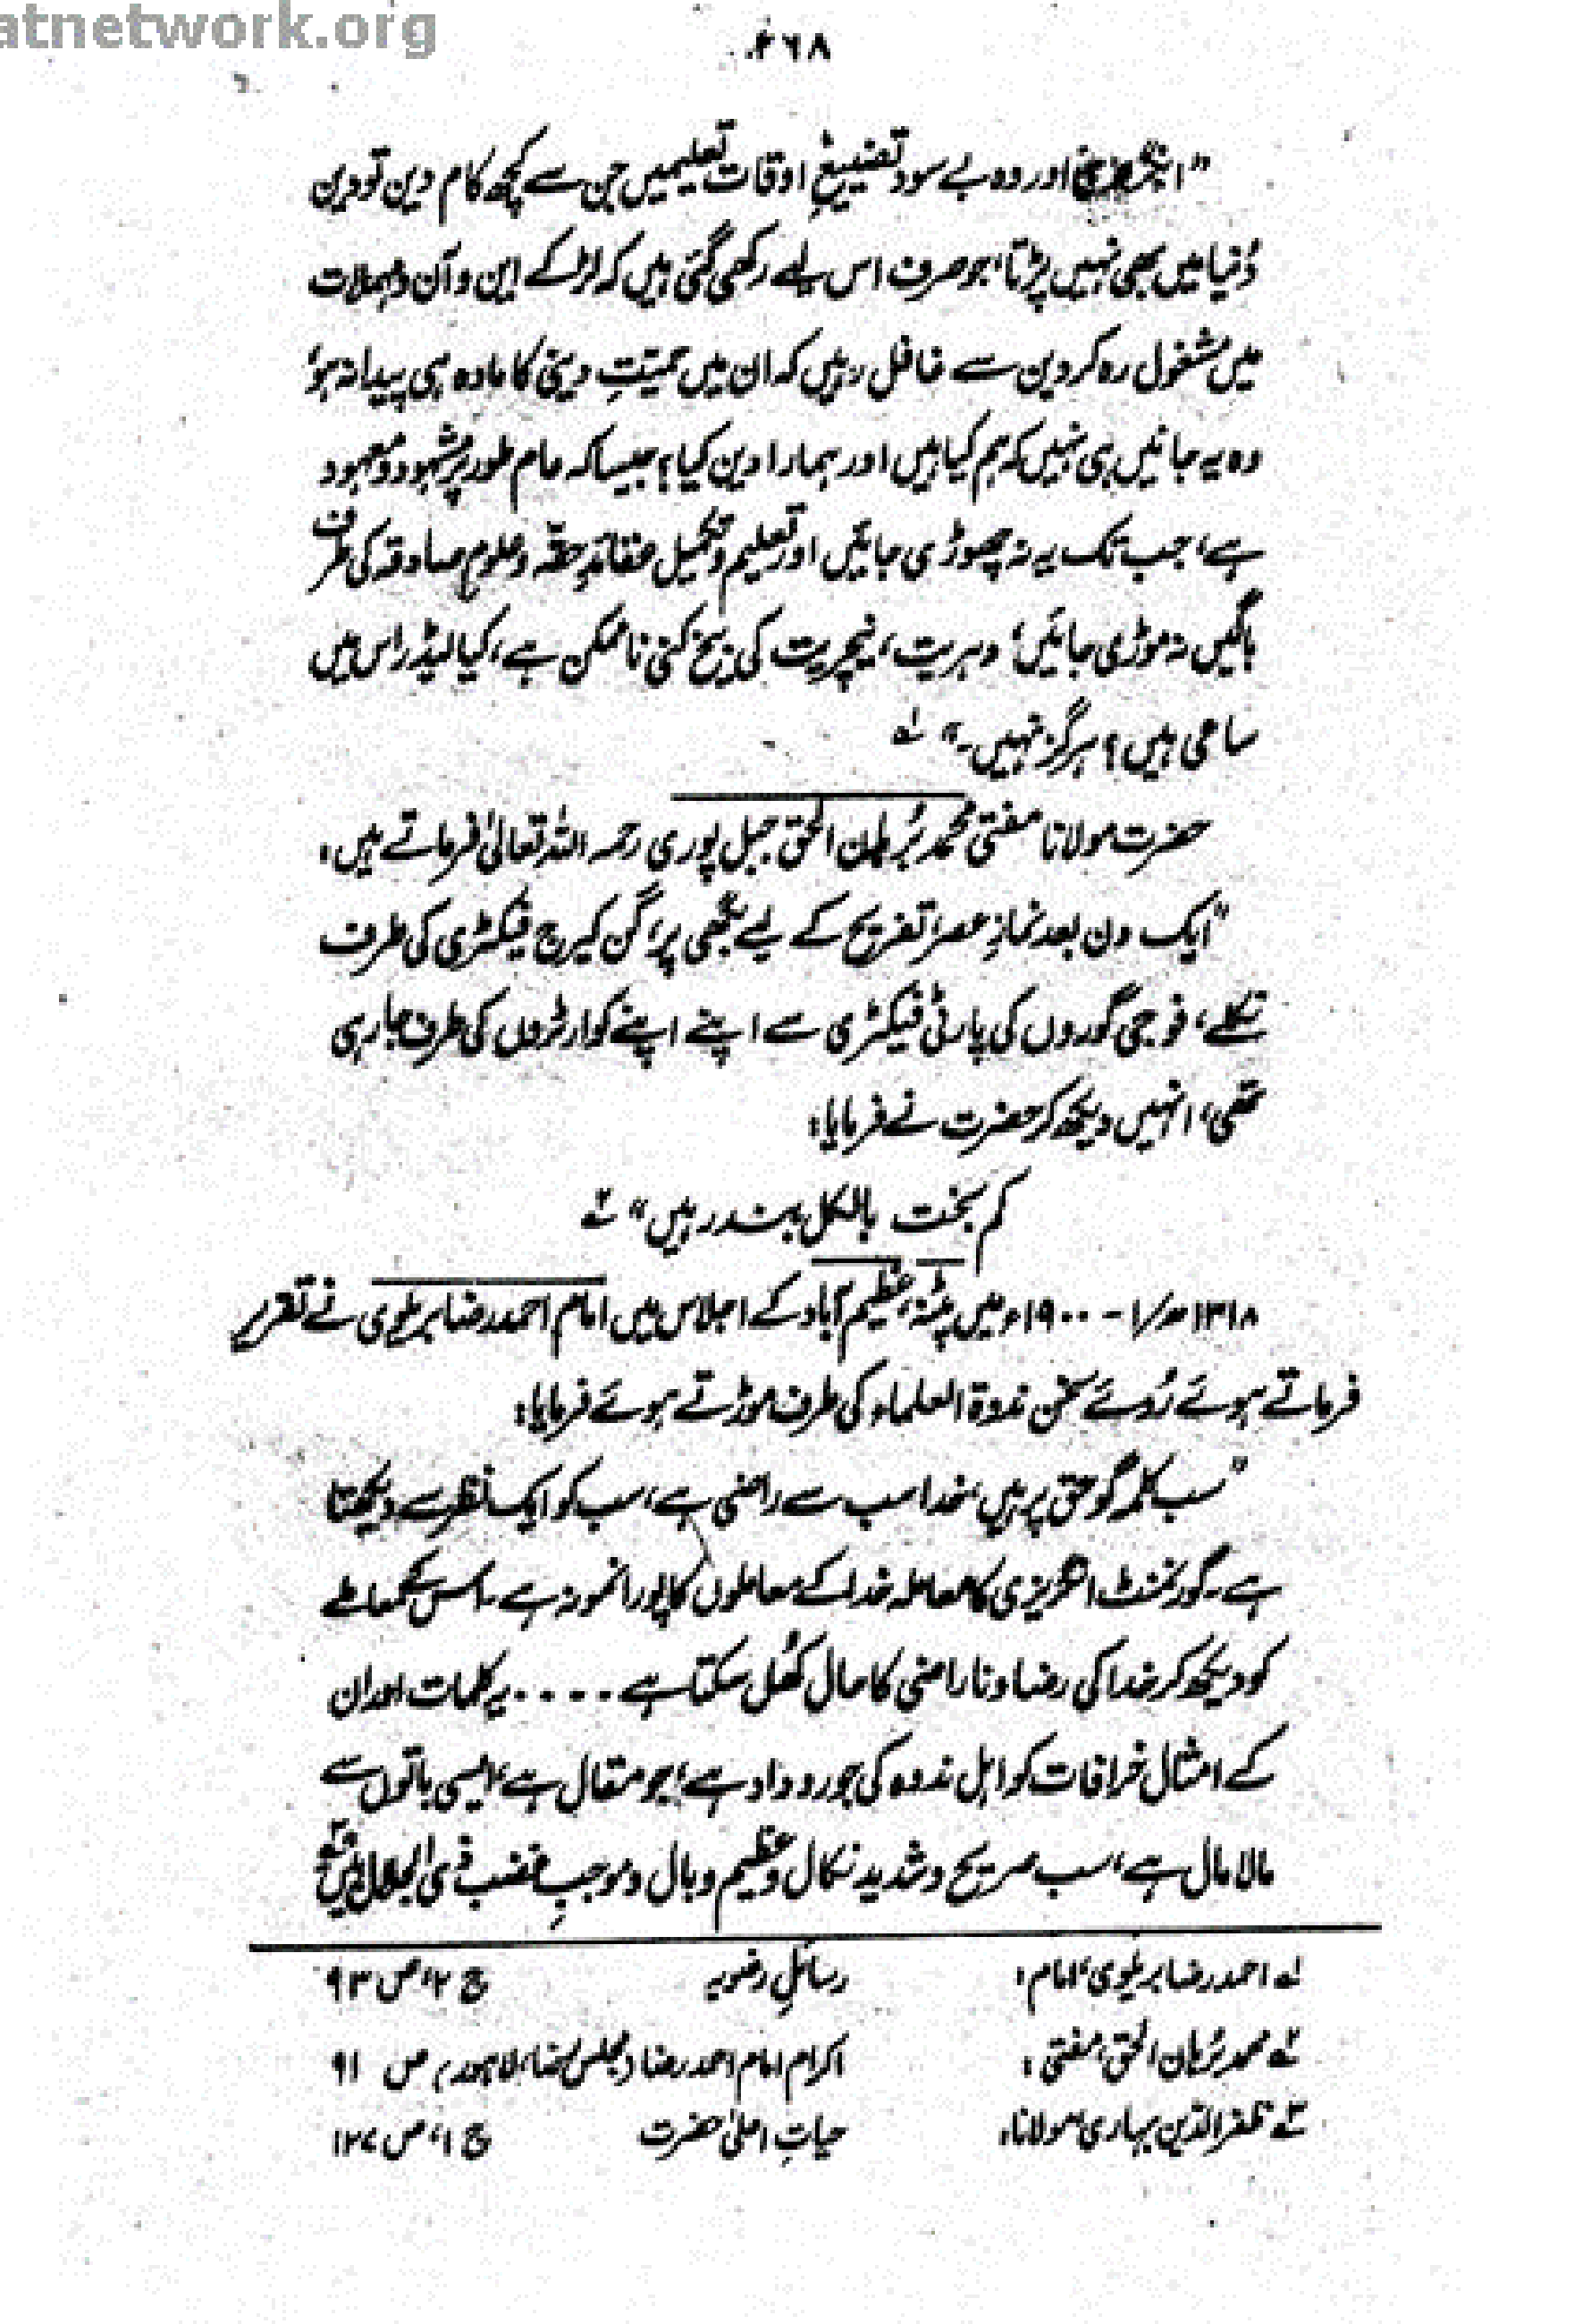 atnetwork.org
۲۶۸
"انگریزی اور وہ بے سود تضییعِ اوقات تعلیمیں جن سے کچھ کام دین تو دین
دُنیا میں بھی نہیں پڑتا، جو صرف اس لیے رکھی گئی ہیں کہ لڑکے این و آن و مہملات
میں مشغول رہ کر دین سے غافل رہیں کہ ان میں حمیّتِ دینی کا مادہ ہی پیدا نہ ہو،
وہ یہ جانیں ہی نہیں کہ ہم کیا ہیں اور ہمارا دین کیا؟ جیسا کہ عام طور پر مشہود و معہود
ہے، جب تک یہ نہ چھوڑی جائیں اور تعلیم و تکمیل عقائدِ حقّہ و علومِ صادقہ کی طرف
باگیں نہ موڑی جائیں، دہریت، نیچریت کی بیخ کنی ناممکن ہے، کیا لیڈر اس میں
ساعی ہیں؟ ہرگز نہیں۔" لے
حضرت مولانا مفتی محمد بُرہان الحق جبل پوری رحمہ اللہ تعالیٰ فرماتے ہیں:
"ایک دن بعد نمازِ عصر تفریح کے لیے بگھی پر، گن کیرج فیکٹری کی طرف
نکلے، فوجی گوروں کی پارٹی فیکٹری سے اپنے اپنے کوارٹروں کی طرف جا رہی
تھی، انہیں دیکھ کر حضرت نے فرمایا:
کم بخت بالکل بندر ہیں" ۲ے
۱۳۱۸ھ/۱-۱۹۰۰ء میں پٹنہ، عظیم آباد کے اجلاس میں امام احمد رضا بریلوی نے تقریر
فرماتے ہوئے رُوئے سخن ندوۃ العلماء کی طرف موڑتے ہوئے فرمایا:
"سب کلمہ گو حق پر ہیں، خدا سب سے راضی ہے، سب کو ایک نظر سے دیکھتا
ہے۔ گورنمنٹ انگریزی کا معاملہ خدا کے معاملوں کا پورا نمونہ ہے۔ اس کے معاملے
کو دیکھ کر خدا کی رضا و ناراضی کا حال کھُل سکتا ہے ۔۔۔۔ یہ کلمات اور ان
کے امثال خرافات کو اہل ندوہ کی جو روداد ہے، جو مقال ہے، ایسی باتوں سے
مالا مال ہے، سب صریح و شدید نکال و عظیم وبال و موجبِ غضب ذی الجلال ہیں" ۳ے
۱ے احمد رضا بریلوی، امام: رسائلِ رضویہ ج ۲، ص ۹۳
۲ے محمد بُرہان الحق، مفتی: اکرام امام احمد رضا (مجلس رضا، لاہور) ص ۹۱
۳ے ظفر الدین بہاری، مولانا: حیاتِ اعلیٰ حضرت ج ۱، ص ۱۲۷